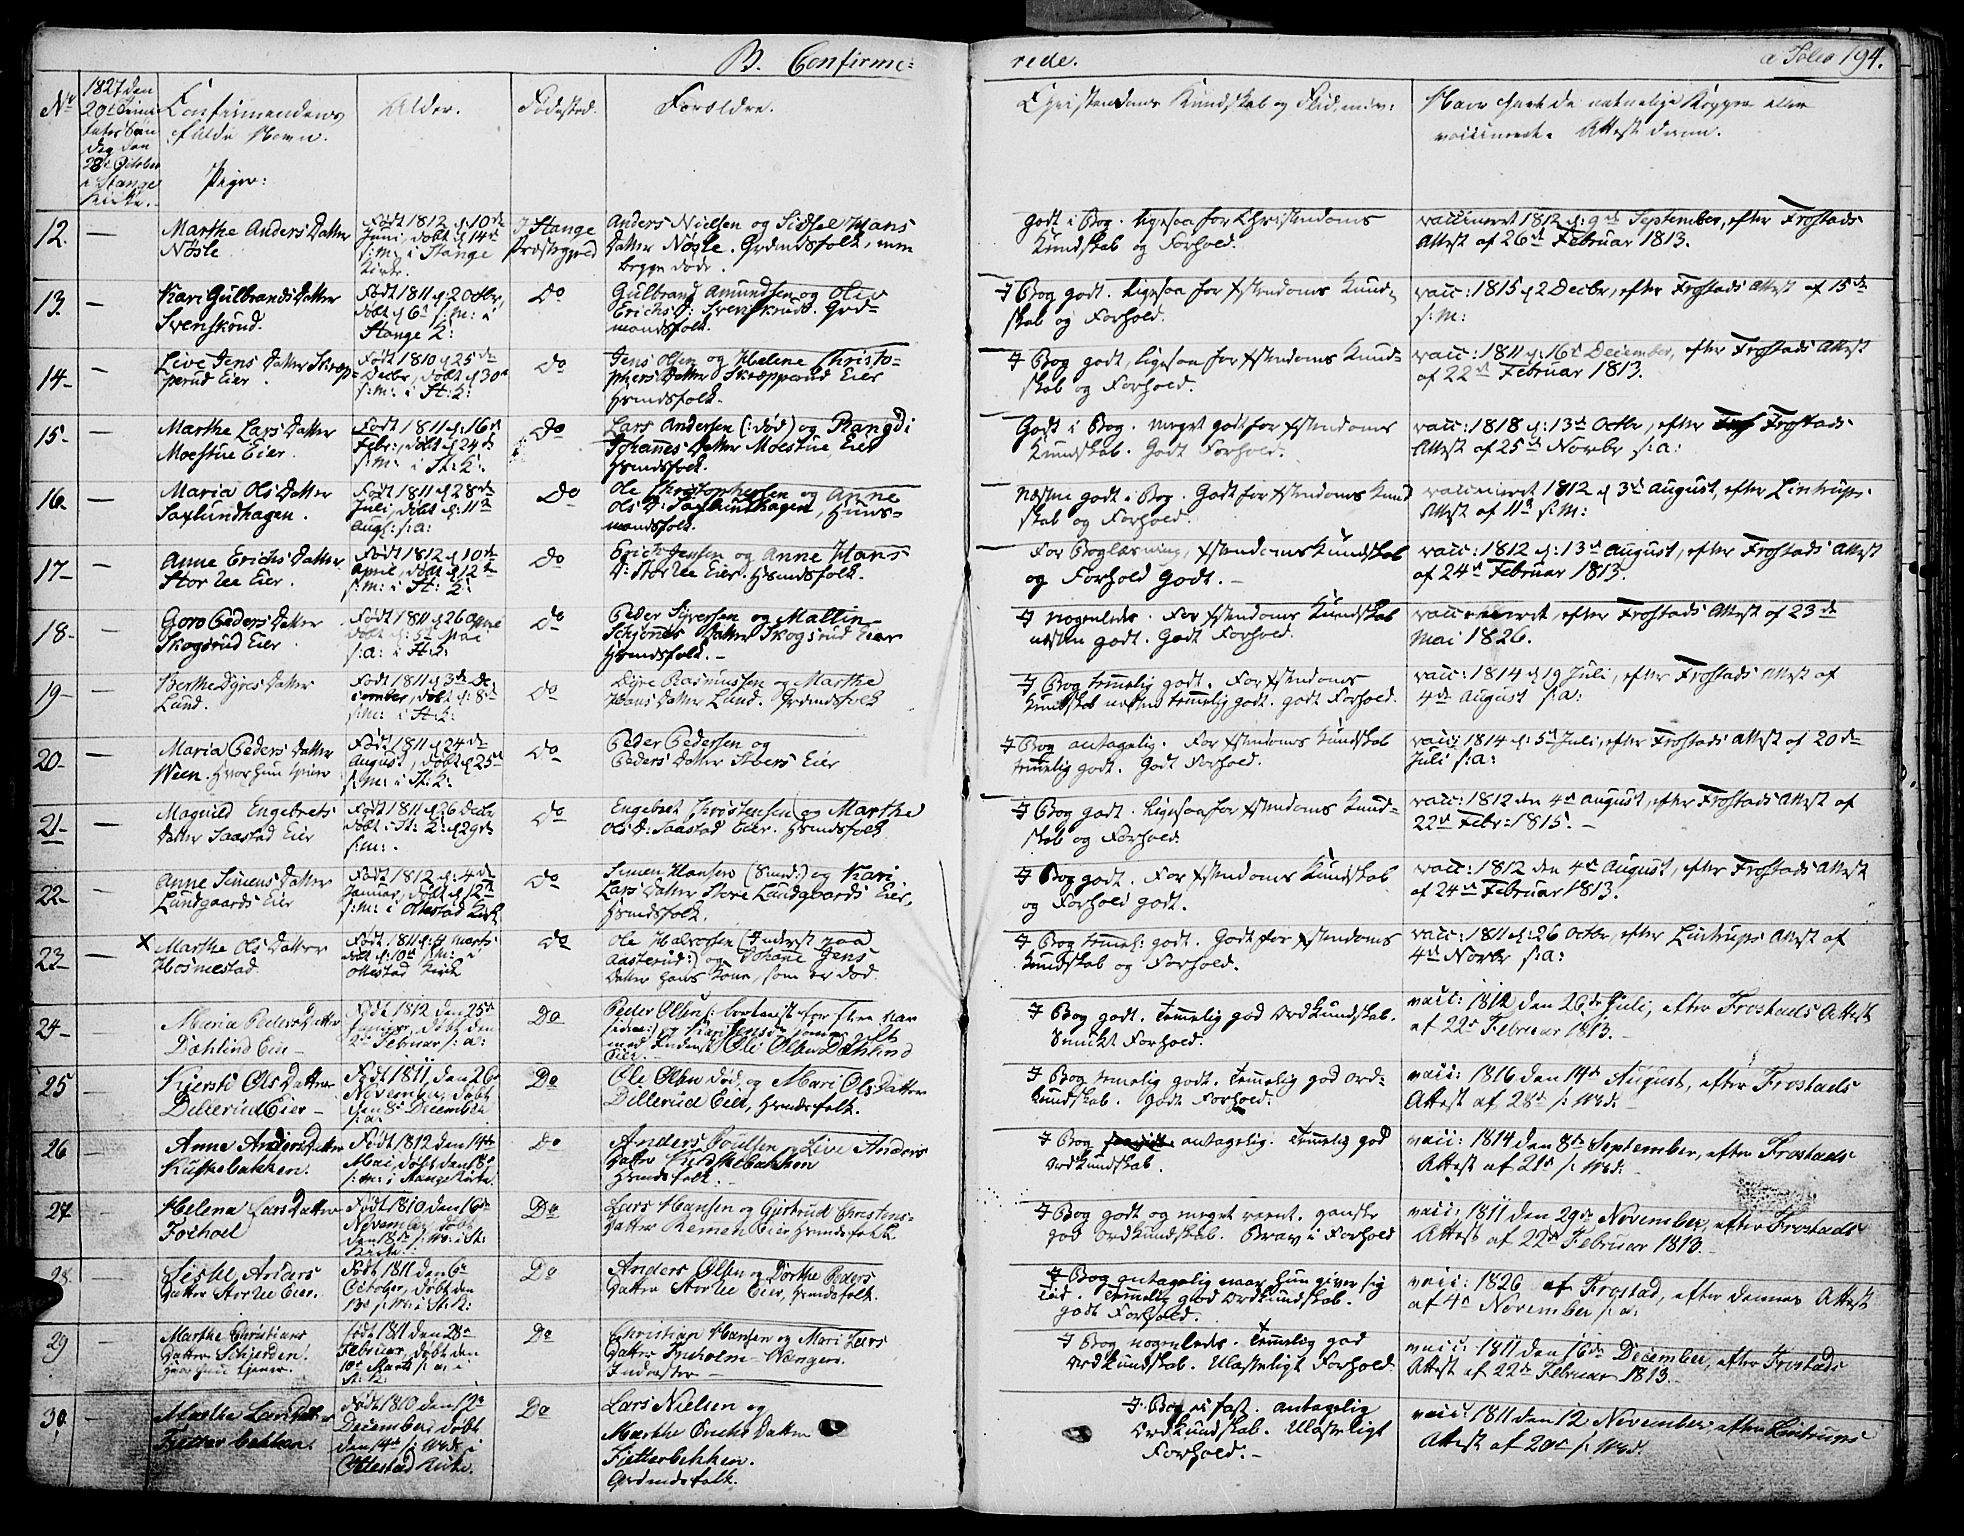 B. Confirme=
rede.
a Folio 194.
No
1827 den
20de
Søn
dag den
28de October
i Stange
Kirke.
Confirmandens
fulde Navn.
Piger:
Alder.
Fødested.
Forældre.
Christendoms Kundskab og Flid, m:
Have havt de naturlige Kopper eller
vaccinerede. Attest derom.
12. —
Marthe Anders Datter
Nøsle
Født 1812 d: 10de
Juni, døbt d: 14de
s: m: i Stange
Kirke.
I Stange
Præstegjeld
Anders Nielsen og Sidsel Hans
Datter Nøsle. Grdmdsfolk, men
begge døde.
Godt i Bog. Ligesaa for Christendoms
Kundskab og Forhold.
vaccineret 1812 d: 9de September, efter Frostads
Attest af 26de Februar 1813.
13. —
Kari Gulbrands Datter
Svenskrud.
Født 1811 d: 2 Octbr,
døbt d: 6te s: m: i
Stange K:
Do
Gulbrand Amundsen og Olea
Erichs D: Svenskrud. Grd=
mandsfolk.
I Bog godt. Ligesaa for Xstendoms Kund=
skab og Forhold.
vacc: 1815 d: 2 Decbr, efter Frostads Attest af 15de
s: m:
14 —
Live Jens Datter Skræp=
perud Eier.
Født 1810 d: 25de
Decbr, døbt d: 30te
s: m: i St: K:
Do
Jens Olsen og Helene Christo=
phers Datter Skræpperud Eier
Hsmdsfolk.
I Bog godt, ligesaa for Xstendoms Kund=
skab og Forhold.
vacc: 1811 d: 16de December, efter Frostads Attest
af 22de Februar 1813.
15 —
Marthe Lars Datter
Moestue Eier.
Født 1811 d: 16de
Febr:, døbt d: 24de
s: m: i St: K:
Do
Lars Andersen (: død) og Rangdi
Johannes Datter Moestue Eier
Hsmdsfolk.
Godt i Bog. meget godt for Xstendoms
Kundskab. Godt Forhold.
vacc: 1818 d: 13de Octbr, efter Frostads
Attest af 25de Novbr s: a:
16 —
Maria Ols Datter
Saxlundhagen.
Født 1811 d: 28de
Juli, døbt d: 11te
Aug: s: a:
Do
Ole Christophersen og Anne
Ols D: Saxlundhagen, Huus=
mandsfolk.
Næsten godt i Bog. Godt for Xstendoms Kund
skab og Forhold.
vaccineret 1812 d: 3de August, efter Lintrups
Attest af 11te s: m:
17 —
Anne Erichs Datter
Storlee Eier.
Født 1812 d: 10de
April, døbt d: 12te
s: m: i St: K:
Do
Erich Jensen og Anne Hans
D: Storlee Eier. Hsmdsfolk.
For Boglæsning, Xstendoms Kundskab
og Forhold Godt. —
vacc: 1812 d: 13de August, efter Frostads Attest
af 24de Februar 1813.
18 —
Goro Peders Datter
Skogsrud Eier
Født 1811 d: 26 April
døbt d: 5te Mai
s: a: i St: K:
Do
Peder Syversen og Mallin
Datter Skogsrud Eier
Hsmdsfolk. —
I nogenlede. For Xstendoms Kundskab
næsten godt. Godt Forhold.
vaccineret, efter Frostads Attest af 23de
Mai 1826.
19 —
Berthe Dyres Datter
Lund.
Født 1811 d: 3de De
cember, døbt d: 8de
s: m: i St: K:
Do
Dyre Rasmussen og Marthe
Hans Datter Lund. Grdmdsfolk
I Bog temmelig godt. For Xstendoms
Kundskab næsten temmelig godt. godt Forhold.
vacc: 1814 d: 19 Juli, efter Frostads Attest af
4de August s: a:
20 —
Maria Peders Datter
Ween. hvor hun tjener
Født 1811 d: 24de
August, døbt d: 25de
s: m: i St: K:
Do
Peder Pedersen og
Peders Datter Eier
I Bog antagelig. For Xstendoms Kundskab
temmelig godt. Godt Forhold.
vacc: 1814 d: 5te Juli, efter Frostads Attest af 20de
Juli s: a:
21 —
Magnild Engebrets
Datter Saastad Eier
Født 1811 d: 26 Decbr
døbt i St: K: d: 29de
s: m:
Do
Engebret Thostensen og Marthe
Ols D: Saastad Eier. Hsmdsfolk
I Bog godt. Ligesaa for Xstendoms Kund=
skab og Forhold.
vacc: 1812 den 4de August, efter Frostads Attest af
22de Febr: 1815. —
22 —
Anne Simens Datter
Lundgaards Eier
Født 1812 d: 4de
Januar, døbt d: 12te
s: m: i Ottestad Kirk.
Do
Simen Hansen (Smed:) og Kari
Lars Datter Store Lundgaards Eier,
Hsmdsfolk.
I Bog godt. For Xstendoms Kundskab
og Forhold godt.
vacc: 1812 den 4de August, efter Frostads Attest
af 24de Februar 1813.
23 —
x Marthe Ols Datter
Hosmestad
Født 1811 d: 4 Marts
døbt d: 10de s: m: i
Ottestad Kirke
Do
Ole Halvorsen (Inderst paa
Aasterud:) og Johane Jens
Datter hans Kone, som er død
I Bog temmel: godt. Godt for Xstendoms
Kundskab og Forhold.
vacc: 1811 d: 26 Octbr, efter Lintrups Attest af
4de Novbr s: a:
24 —
Maria Peders Datter
Dahlind Eier —
Født 1812 den 25de
Januar, døbt den
2den Februar s: a:
Do
Peder Olsen (: bortreist for flere Aar
siden:) og Kari Jensdr
med Inderst Ole Olsen Dahlind
Eier. —
I Bog godt. Temmelig god Ordkundskab.
Smukt Forhold.
vacc: 1812 den 26de Juli, efter Frostads Attest
af 22de Februar 1813. —
25 —
Kjersti Ols Datter
Dillerud Eier —
Født 1811, den 26de
November, døbt
den 8de December
s: a:
Do
Ole Olsen død, og Mari Ols Datter
Dillerud Eier, Hsmdsfolk.
I Bog temmelig godt. Temmelig god Ord=
kundskab. Godt Forhold.
vacc: 1816 den 14de August, efter Frostads
Attest af 28de s: Md: —
26 —
Anne Anders Datter
Kuskebakken.
Født 1812 den 14de
Mai, døbt den 18de
s: m: i Stange Kirke.
Do
Anders Poulsen og Live Anders
Datter Kuskebakken
Hsmdsfolk. —
I Bog antagelig. Temmelig god
Ordkundskab.
vacc: 1814 den 8de September, efter Frostads
Attest af 21de s: Md:
27 —
Helena Lars Datter
Født 1810 den 16de
November, døbt
den 18de s: Md: i St:
Kirke.
Do
Lars Hansen og Gjertrud Christens=
Datter Remen Eier, Hsmdsfolk.
I Bog godt og meget vant. ganske
god Ordkundskab. Brav i Forhold
vacc: 1811 den 29de November, efter Frostads
Attest af 22de Februar 1813. —
28 —
Anders
Datter Storlee Eier.
Født 1811 den 6te
October, døbt den
13de s: M: i St: K:
Do
Anders Olsen og Dorthe Peders
Datter Storlee Eier, Hsmdsfolk.
I Bog antagelig naar hun giver sig
Tid. Temmelig god Ordkundskab.
godt Forhold.
vacc: 1826 af Frostad, efter dennes Attest
af 4de November s: a:
29 —
Marthe Christians
Datter Schjerden.
hvor hun tjener.
Født 1811 den 28de
Februar, døbt den
10de Marts s: a: i
St: K:
Do
Christian Hansen og Mari Lars
Datter
Inderster —
I Bog nogenlede. Temmelig god
Ordkundskab. Ulasteligt Forhold.
vacc: 1811 den 16de December, efter Frostads
Attest af 22de Februar 1813. —
30. —
Marthe Lars Datter
Født 1810 den 12te
December, døbt
den 14de s: Md: i
Ottestad Kirke.
Do
Lars Nielsen og
Marthe Erichs Datter
Grdmdsfolk.
I Bog ei fast. antagelig
Ordkundskab. Ulasteligt
Forhold. —
vacc: 1811 den 12 November, efter Lintrups
Attest af 20de s: Md: